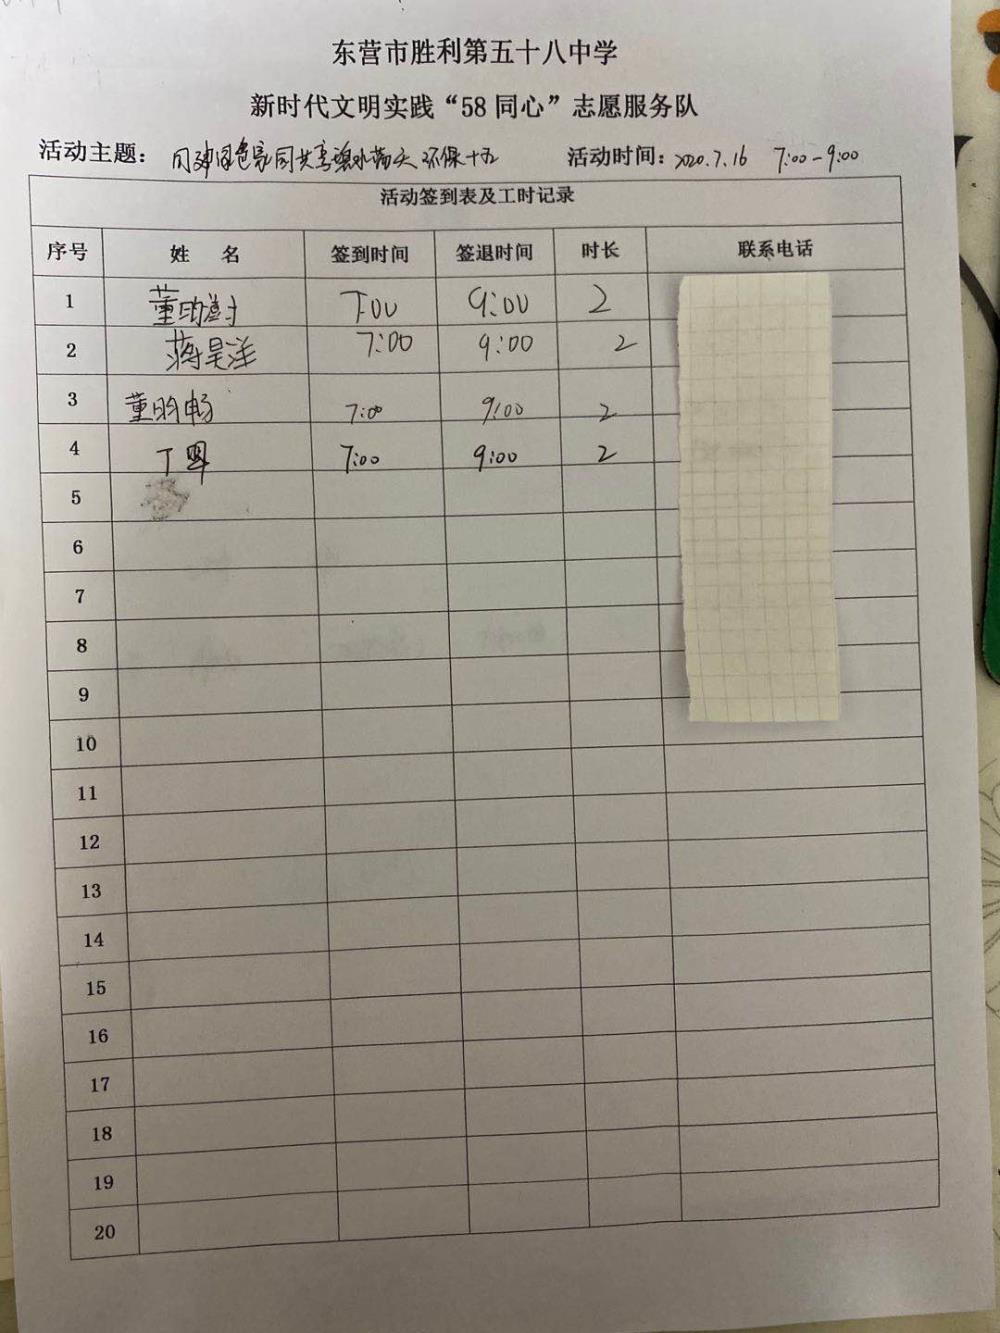 东营市胜利第五十八中学
新时代文明实践“58 同心”志愿服务队
活动主题: 同建绿色家园共享碧水蓝天 环保十五 活动时间: 2020.7.16 7:00-9:00
活动签到表及工时记录
序号 姓 名 签到时间 签退时间 时长 联系电话
1 董昀 7:00 9:00 2
2 蒋昊洋 7:00 9:00 2
3 董昀畅 7:00 9:00 2
4 丁 7:00 9:00 2
5
6
7
8
9
10
11
12
13
14
15
16
17
18
19
20